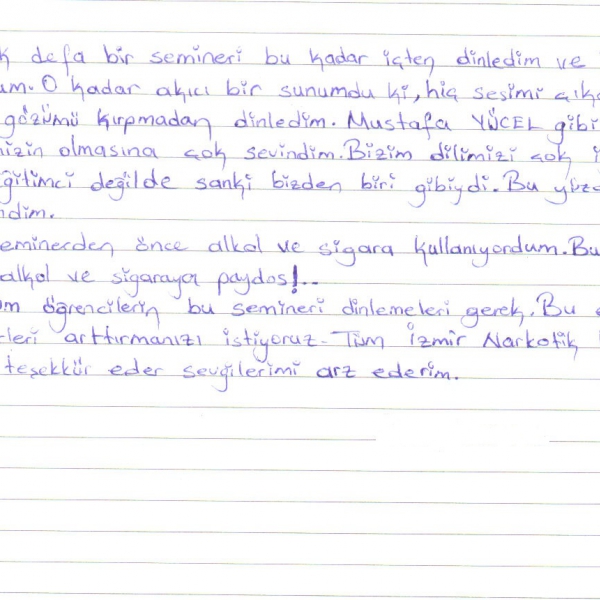 k defa bir semineri bu kadar içten dinledim ve
um. O kadar akıcı bir sunumdu ki, hiç sesimi çıka
gözümü kırpmadan dinledim. Mustafa YÜCEL gibi
mizin olmasına çok sevindim. Bizim dilimizi çok i
ğitimci değilde sanki bizden biri gibiydi. Bu yüzd
ndim.
eminerden önce alkol ve sigara kullanıyordum. Bu
alkol ve sigaraya paydos!..
m öğrencilerin bu semineri dinlemeleri gerek. Bu
leri arttırmanızı istiyoruz. Tüm İzmir Narkotik
teşekkür eder sevgilerimi arz ederim.